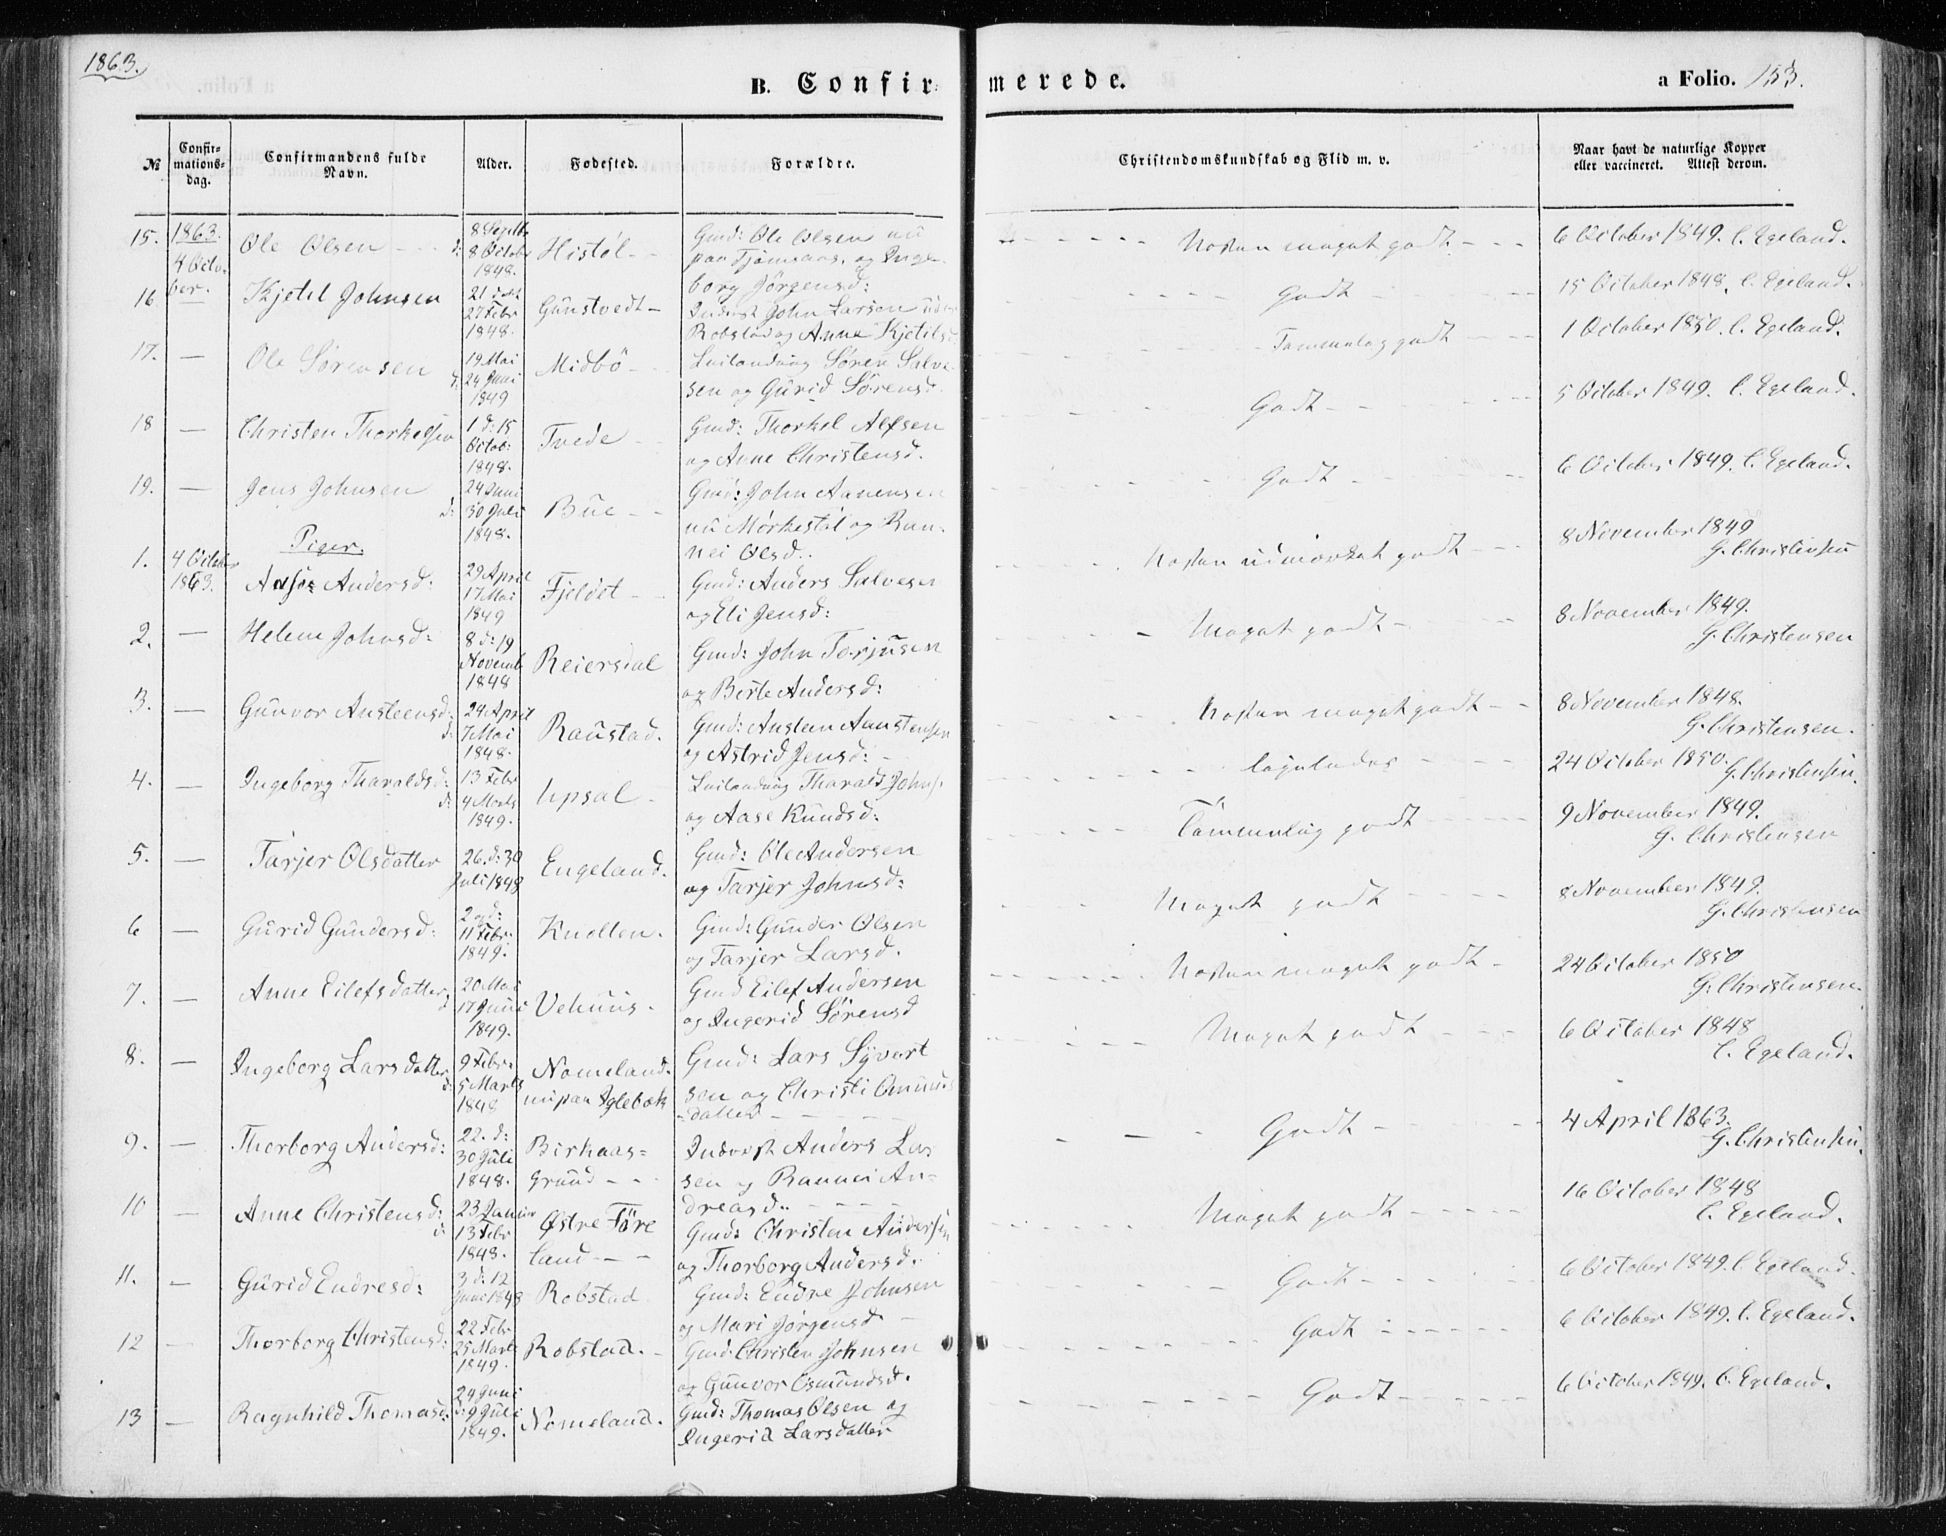 1863.
B. Confirmerede.
a Folio. 153.
№
Confirmationsdag.
Confirmandens fulde Navn.
Alder.
Fødested.
Forældre.
Christendomskundskab og Flid m. v.
Naar havt de naturlige Kopper eller vaccineret. Attest derom.
15. 1863. 4 October. Ole Olsen d: 8 Septbr 8 Octobr 1848. Histøl Gmd: Ole Olsen nu paa Tjømaas, og Ingeborg Jørgensd: Næsten meget godt 6 October 1849. C. Egeland.
16 — Kjetel Johnsen 27 Febr 1848. Gunstvedt Inderst John Larsen Robstad og Anne Kjetilsd Godt 15 October 1848. C. Egeland.
17. — Ole Sørensen d: 19 Mai 24 Juni 1849 Midbö Søren Salvesen og Gurid Sørensd. Temmelig godt 1 October 1850. C. Egeland.
18 — Christen Thorkelsen 1 d: 15 Octob: 1848. Tvede Gmd: Thorkel Alfsen og Anne Christensd. Godt 5 October 1849. C. Egeland.
19. — Jens Johnsen d: 24 Juni 30 Juli 1848. Bue Gmd: John Aanensen nu Mørkestøl og Rannei Olsd. Godt 6 October 1849. C. Egeland.
Piger.
1. 4 October 1863. Andersd: 29 April 17 Mai 1849 Fjeldet Gmd: Anders Salvesen og Eli Jensd: Næsten udmærket godt 8 November 1849 G. Christensen
2. — Helene Johnsd: 8 d: 19 Novemb 1848 Reiersdal Gmd: John Tarjusen og Birte Andersd: Meget godt 8 November 1849. G. Christensen
3. — Gunvor Austeensd: d: 24 April 7 Mai 1848. Raustad. Gmd: Austen Aanstensen og Astrid Jensd: Næsten meget godt 8 November 1848. G. Christensen.
4. — Ingeborg Tharaldsd: d: 13 Febr 4 Marts 1849. Upsal Tharald Johns. og Aase Knudsd: Ligeledes 24 October 1850. G. Christensen.
5. — Tarjer Olsdatter 26. d: 30 Juli 1848 Engeland. Gmd: Ole Andersen og Tarjer Johnsd: Temmelig godt 9 November 1849. G. Christensen
6 — Gurid Gundersd: 2 d: 11 Febr. 1849. Knolten. Gmd: Gunder Olsen og Tarjer Larsd. Meget godt 8 November 1849. G. Christensen
7. — Anne Eilefsdatter d 20 Mai 17 Juni 1849. Vehuus. Gmd Eilef Andersen og Ingerid Sørensd Næsten meget godt 24 October 1850 G. Christensen.
8. — Ingeborg Larsdatter d: 9 Febr. 5 Marts 1848 Nomeland. nu paa Iglebæk Gmd: Lars Syvertsen og Christi Omundsdatter Meget godt 6 October 1848 C. Egeland.
9. — Thorborg Andersd: 22. d: 30 Juli 1848. Birkaasgrund Inderst Anders Larsen og Rannei Andreasd.. Godt 4 April 1863. G. Christensen.
10 — Anne Christensd: d: 23 Januar 13 Febr 1848. Østre Føreland Gmd: Christen Andersen og Thorborg Andersd. Meget godt 16 October 1848 C. Egeland.
11. — Gurid Endresd: 3 d: 12 Juni 1848 Robstad Gmd: Endre Johnsen og Mari Jørgensd Godt 6 October 1849. C. Egeland.
12 — Thorborg Christensd: 22 Febr 25 Marts 1849. Robstad. Gmd: Christen Johnsen og Gunvor Osmundsd. Godt 6 October 1849. C. Egeland.
13 — Ragnhild Thomasd: d: 24 Juni 9 Juli 1849. Nomeland. Gmd: Thomas Olsen og Ingerid Larsdatter Godt 6 October 1849. C. Egeland.